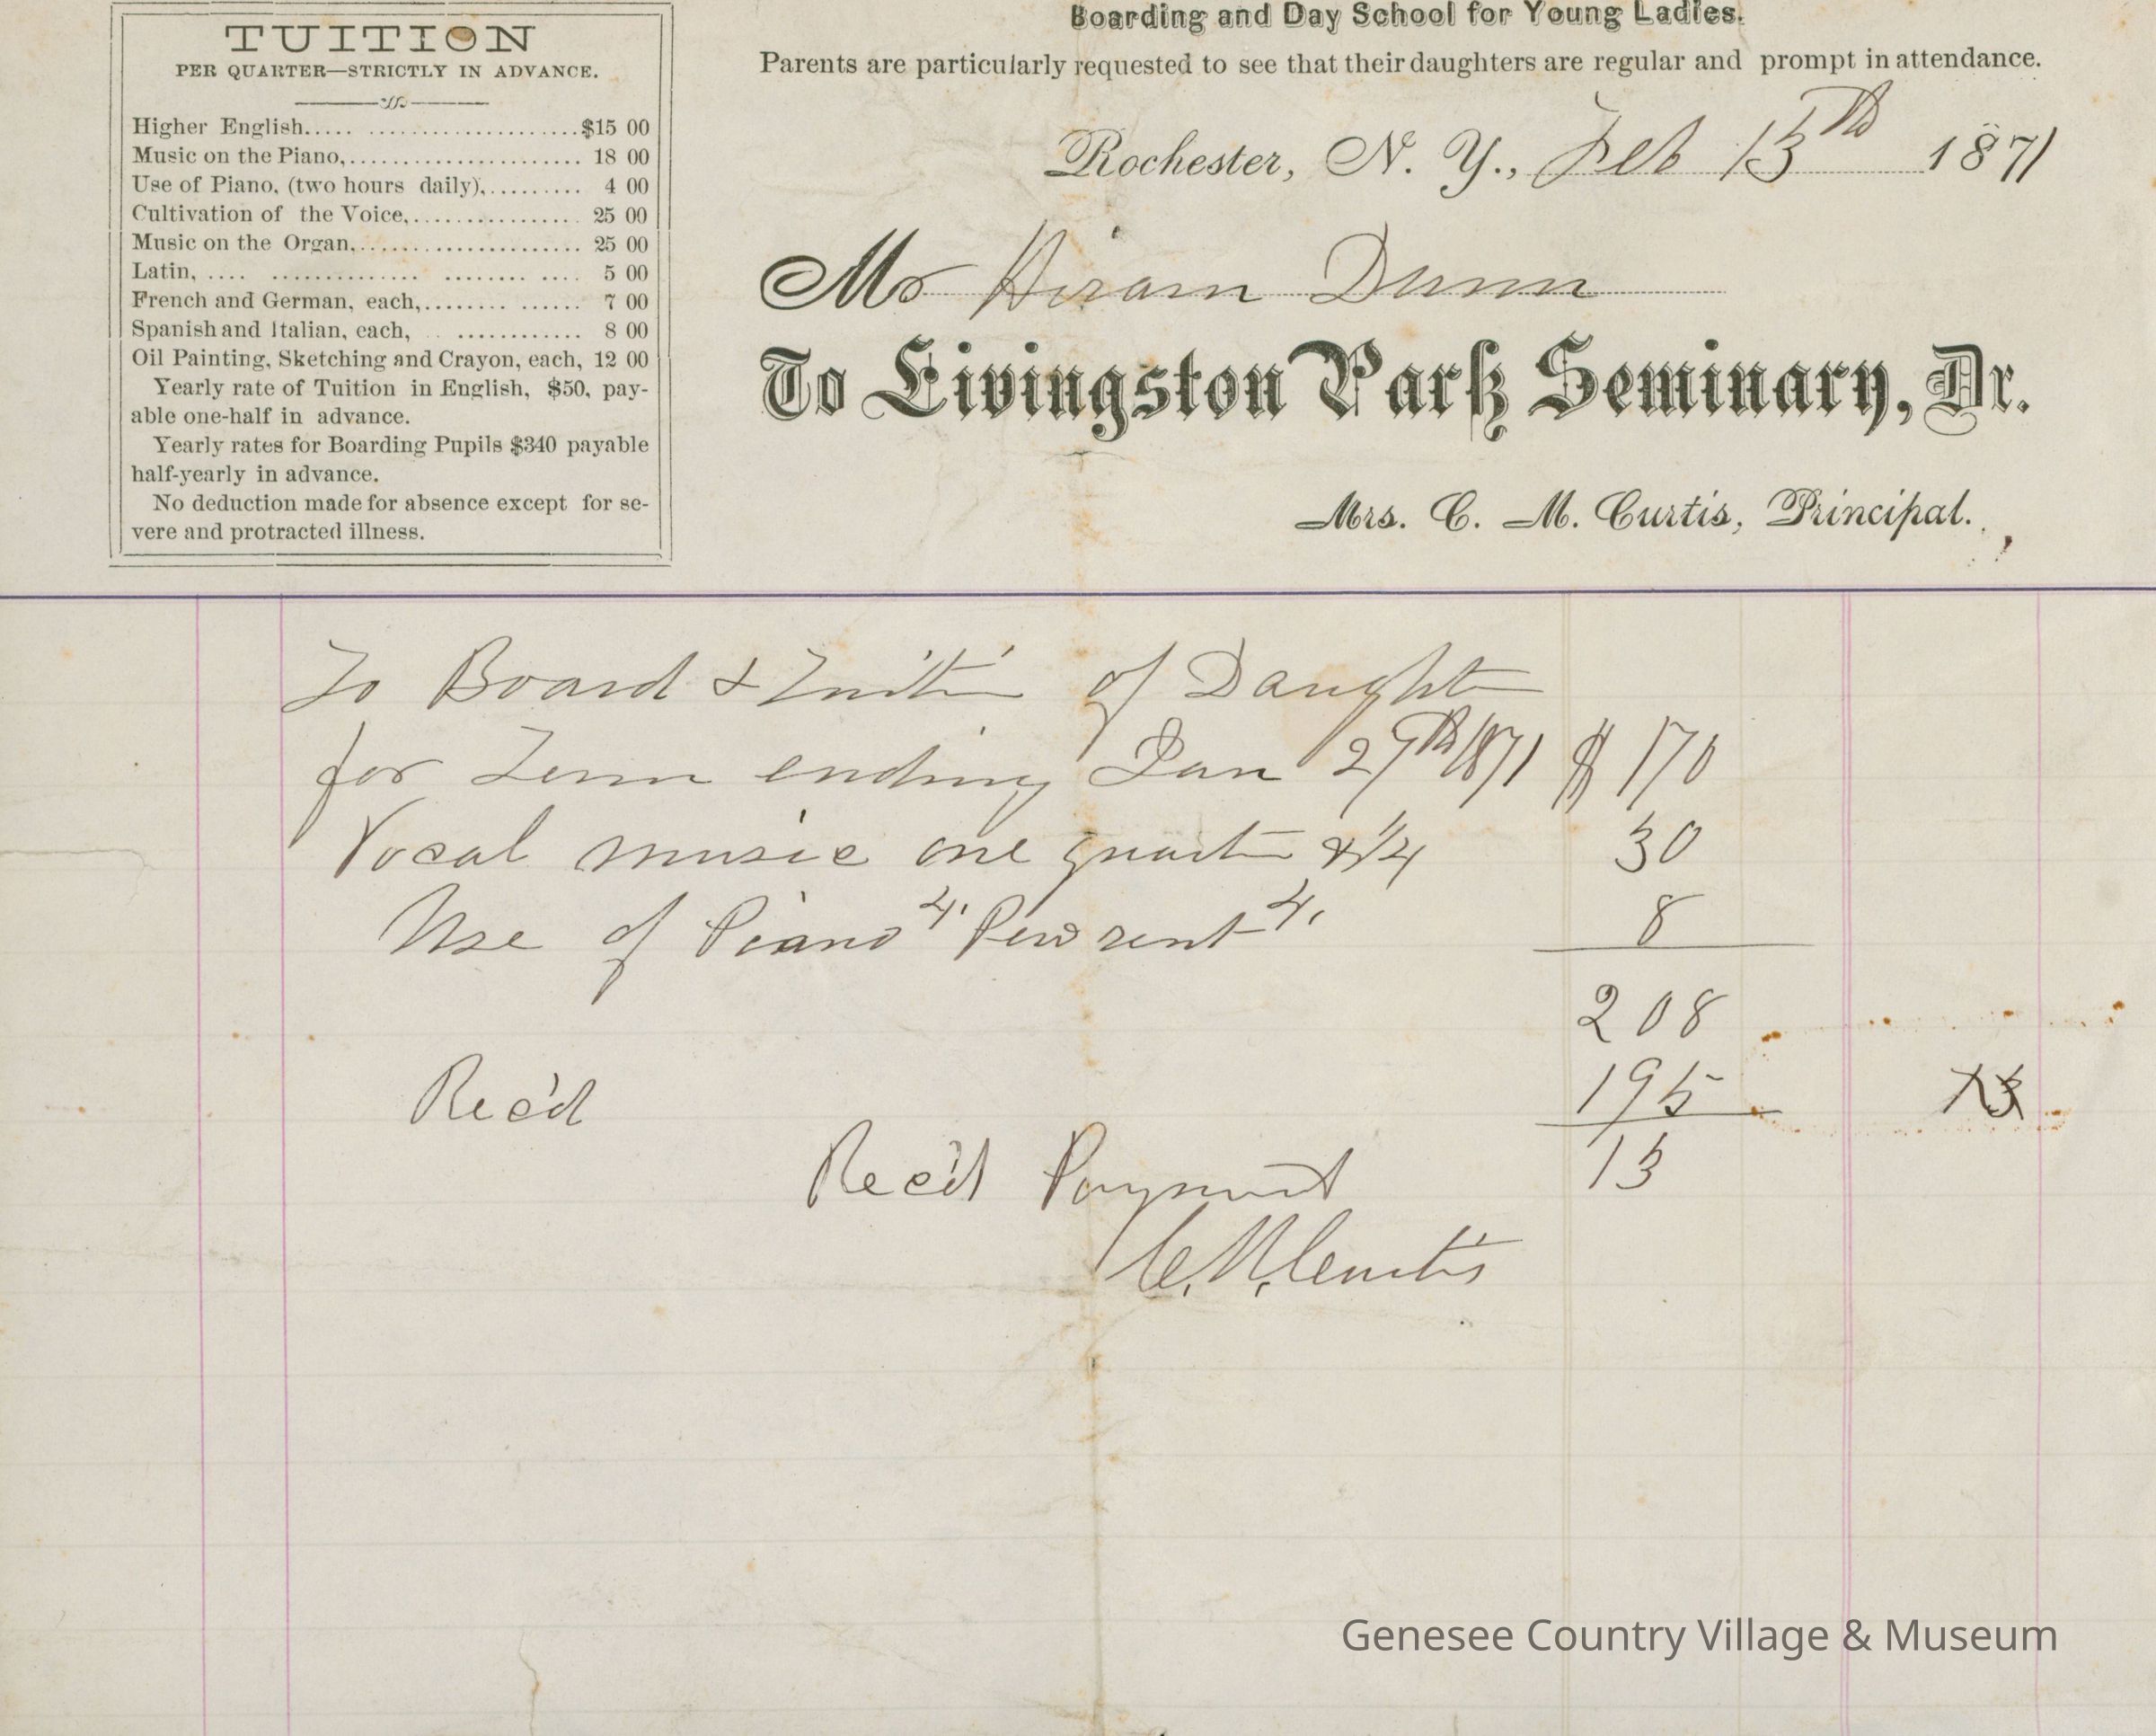 TUITION
PER QUARTER—STRICTLY IN ADVANCE.
Higher English..... .....................$15 00
Music on the Piano,....................... 18 00
Use of Piano, (two hours daily),......... 4 00
Cultivation of the Voice,................. 25 00
Music on the Organ,....................... 25 00
Latin, .... .............. ........ .... 5 00
French and German, each,........ ...... 7 00
Spanish and Italian, each, .. ............ 8 00
Oil Painting, Sketching and Crayon, each, 12 00
Yearly rate of Tuition in English, $50, pay-
able one-half in advance.
Yearly rates for Boarding Pupils $340 payable
half-yearly in advance.
No deduction made for absence except for se-
vere and protracted illness.
Boarding and Day School for Young Ladies.
Parents are particularly requested to see that their daughters are regular and prompt in attendance.
Rochester, N. Y., Feb 13th 1871
Mr Hiram Dunn
To Livingston Park Seminary, Dr.
Mrs. C. M. Curtis, Principal.
To Board & Tuition of Daughter
for Term ending Jan 27th 1871 $ 170
Vocal music one quarter & 1/4 30
Use of Piano 4, Pew rent 4, 8
208
Rec'd 195
13
Rec'd Payment
C. M. Curtis
Genesee Country Village & Museum